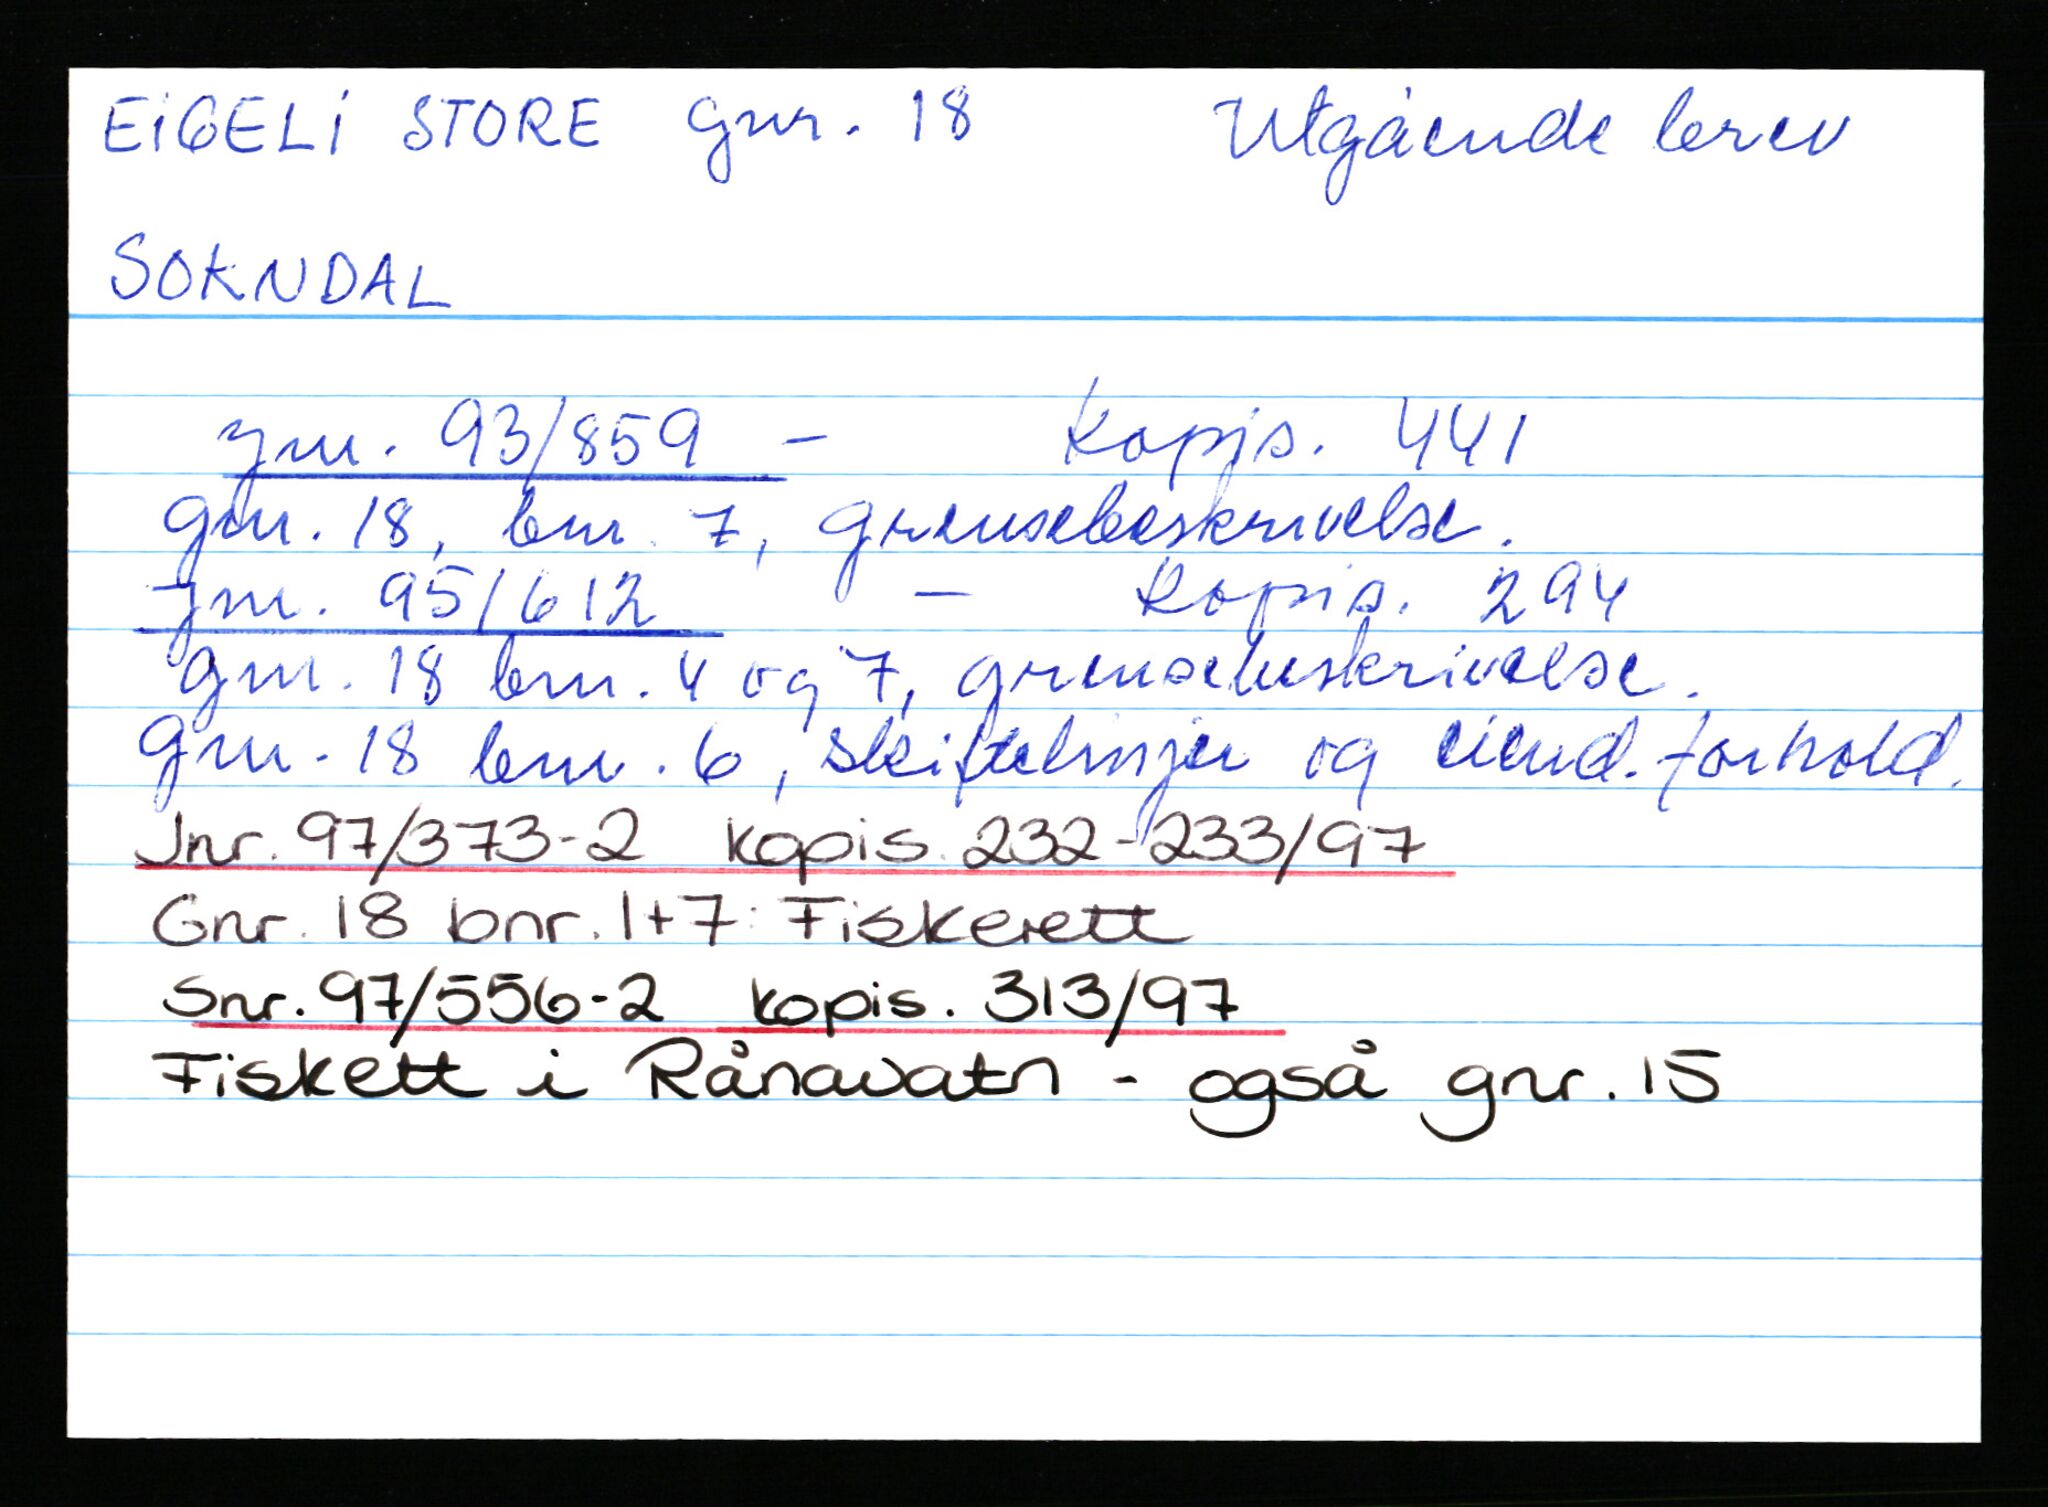 EIGELI STORE gnr. 18 Utgående brev
SOKNDAL
jnr. 93/859 - Kopis. 441
gnr. 18, bnr. 7, grensebeskrivelse.
jnr. 95/612 - Kopis. 294
gnr. 18 bnr. 4 og 7, grensebeskrivelse.
gnr. 18 bnr. 6, skiftelinjer og eiend.forhold.
Jnr. 97/373-2 kopis. 232-233/97
Gnr. 18 bnr. 1+7: Fiskerett
Snr. 97/556-2 kopis. 313/97
Fiskett i Rånavatn - også gnr. 15